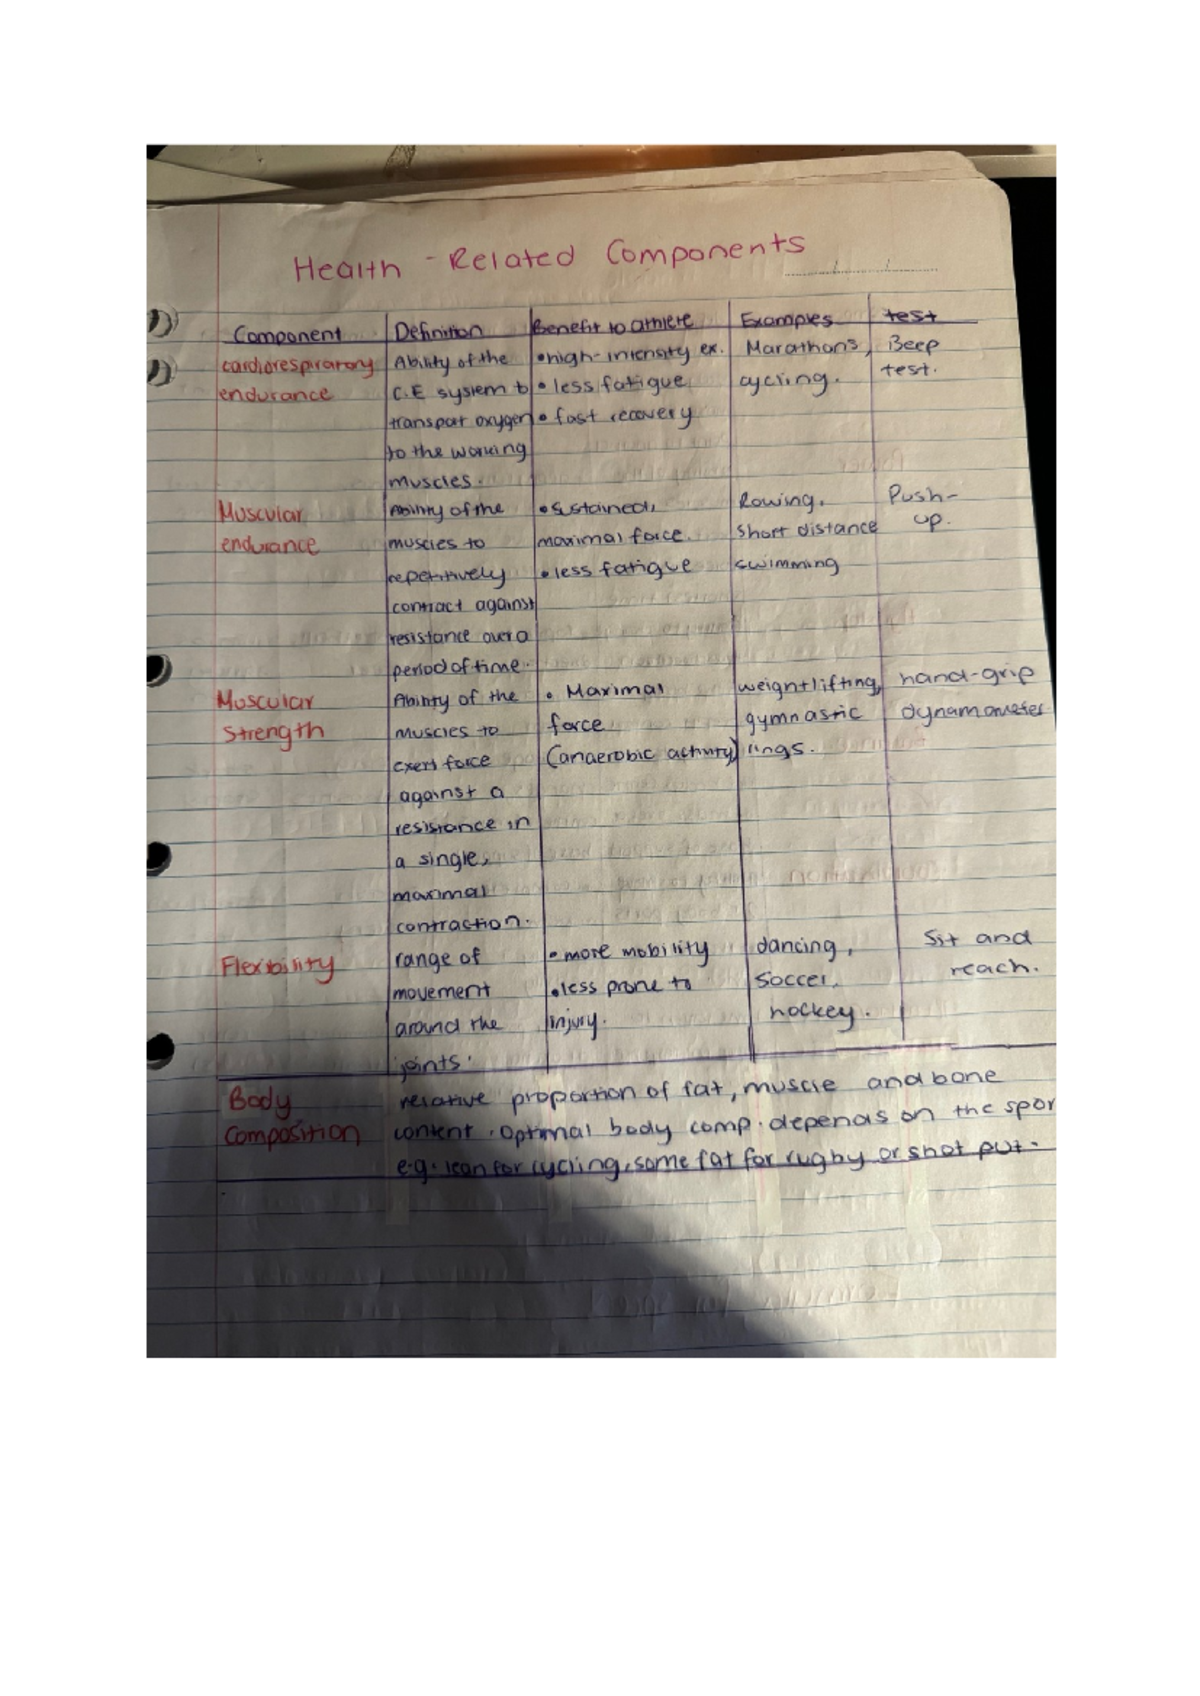 Health - Related Components
Component Definition Benefit to athlete Examples test
cardiorespiratory endurance
Ability of the
C.E system to
transport oxygen
to the working
muscles.
•high-intensity ex.
• less fatigue
• fast recovery
Marathons,
cycling.
Beep
test.
Muscular
endurance
Ability of the
muscles to
repetitively
contract against
resistance over a
period of time.
•sustained,
maximal force.
•less fatigue
Rowing,
short distance
swimming
Push-
up.
Muscular
Strength
Ability of the
muscles to
exert force
against a
resistance in
a single,
maximal
contraction.
• Maximal
force
(anaerobic activity)
weightlifting,
gymnastic
rings.
hand-grip
dynamometer
Flexibility
range of
movement
around the
joints.
•more mobility
•less prone to
injury.
dancing,
soccer,
hockey.
Sit and
reach.
Body
Composition
relative proportion of fat, muscle and bone
content. Optimal body comp. depends on the spor
e.g. lean for cycling, some fat for rugby or shot put.